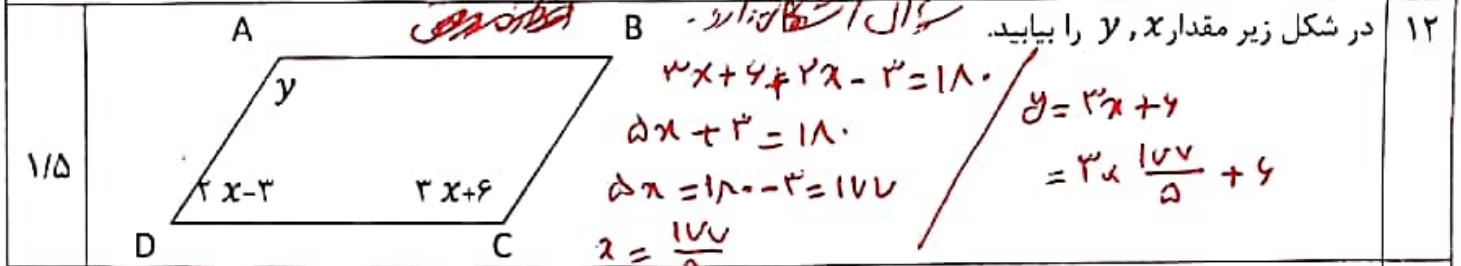 ۱۲ در شکل زیر مقدار x , y را بیابید.
سوال اشکال دارد.
A B
y
۲ x-۳ ۳ x+۶
D C
۱/۵
۳x+۶+۲x-۳=۱۸۰
۵x+۳=۱۸۰
۵x=۱۸۰-۳=۱۷۷
x=۱۷۷/۵
y=۳x+۶
=۳×۱۷۷/۵+۶